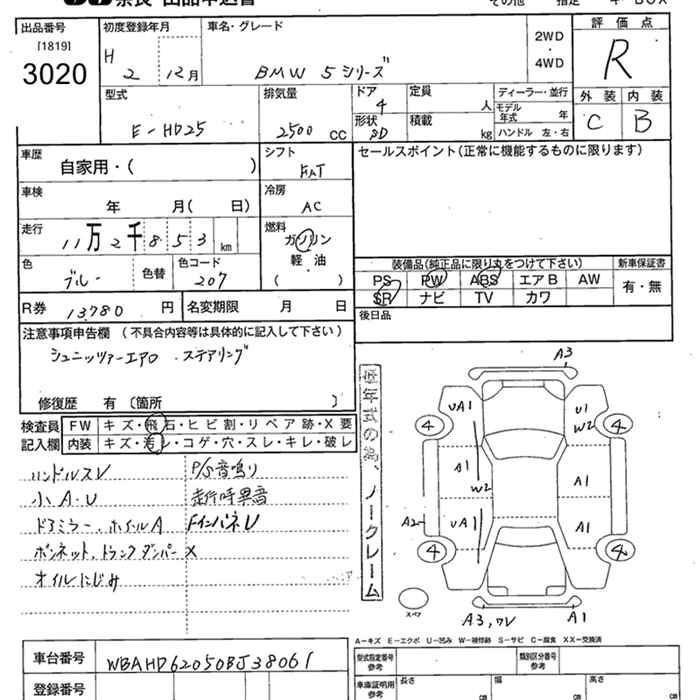 出品番号 初度登録年月 車名・グレード 2WD・4WD 評価点
[1819]
3020 H 2 12月 BMW 5シリーズ R
型式 排気量 ドア 4 定員 人 ディーラー・並行 外装 内装
モデル年式 年 C B
E-HD25 2500 cc 形状 SD 積載 kg ハンドル 左・右
車歴 シフト セールスポイント(正常に機能するものに限ります)
自家用・( ) FAT
車検 冷房
年 月( 日) AC
走行 燃料
11万2千853km ガソリン
軽・油
( )
色 色替 色コード 装備品(純正品に限り丸をつけて下さい) 新車保証書
ブルー 207 PS PW ABS エアB AW 有・無
SR ナビ TV カワ
R券 13780 円 名変期限 月 日 後日品
注意事項申告欄 (不具合内容等は具体的に記入して下さい)
シュニッツァーエアロ ステアリング
修復歴 有 〔箇所 〕
検査員 FW キズ・飛石・ヒビ割・リペア跡・X要
記入欄 内装 キズ・汚レ・コゲ・穴・スレ・キレ・破レ
ハンドルスレ P/S音鳴り
小A・U 走行時異音
ドアミラー、ホイルA FインパネU
ボンネット、トランクダンパーX
オイルにじみ
ノークレーム
A3
UA1 U1
W2
4 4
A1 A1
W2
A2 UA1 A1
4 4
スペア
A3, A1
A−キズ E−エクボ U−凹み W−補修跡 S−サビ C−腐食 XX−交換済
車台番号 WBAHD62050BJ38061 型式指定番号 参考 類別区分番号 参考
登録番号 車庫証明用 参考 長さ cm 幅 cm 高さ cm